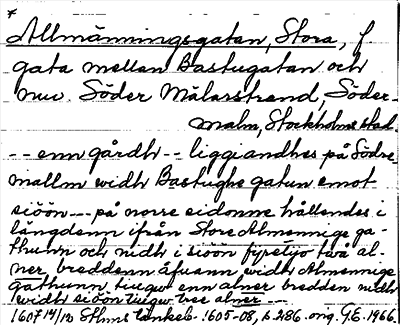 *
Allmänningsgatan, Stora, f.
gata mellan Bastugatan och
nuv Söder Mälarstrand, Söder-
malm, Stockholms stad.
-- enn gårdh -- liggiandhes på Södre
mallm widh Bastughe gatun emot
siöön --- på norre sidonne hållendes i
längdenn ifrån Store Almennige ga-
thunn och nidh i siöön fyretijo två al-
ner, breddenn åfuann widh Almennige
gathunn tiugu enn alner bredden nidh
widh siöön tiugu tree alner --
1607 14/12 Sthms tänkeb. 1605-08, s. 286. orig. G.E. 1966.